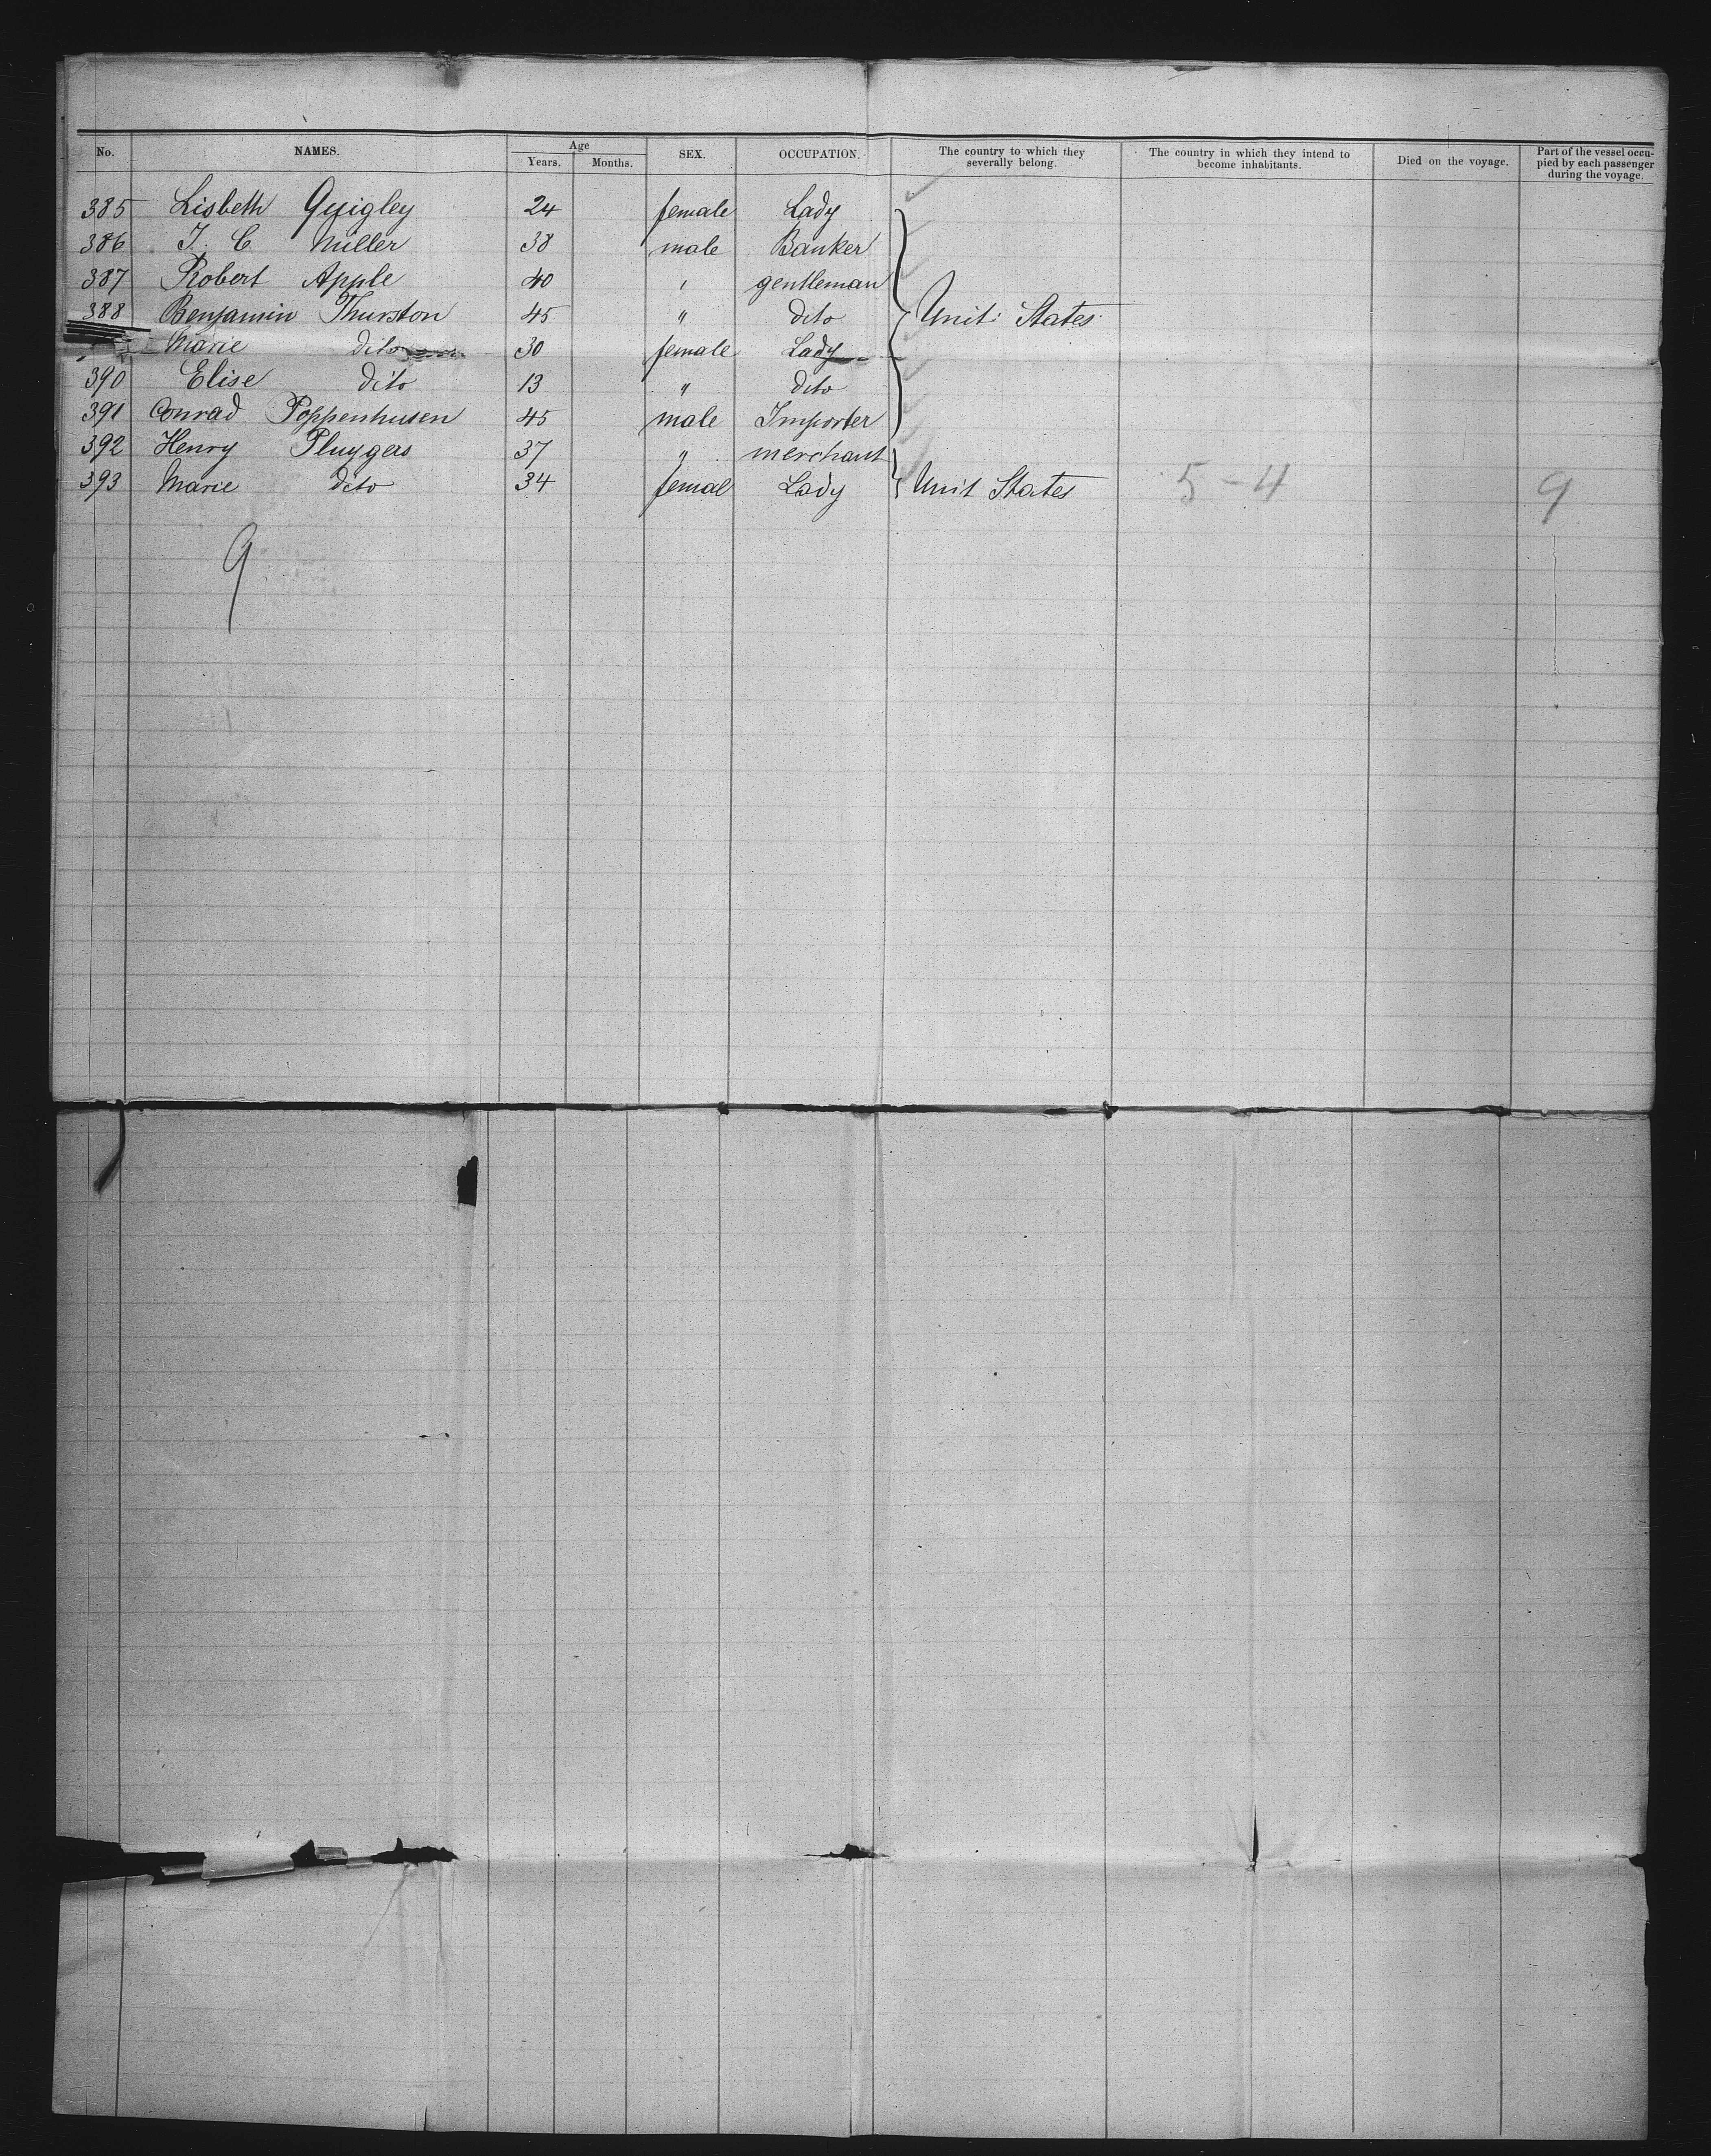 No. NAMES. Age Years. Months. SEX. OCCUPATION. The country to which they severally belong. The country in which they intend to become inhabitants. Died on the voyage. Part of the vessel occupied by each passenger during the voyage.
385 Lisbeth Quigley 24 female Lady
386 J. C. Miller 38 male Banker
387 Robert Apple 40 " gentleman
388 Benjamin Thurston 45 " dito Unit: States
Marie dito 30 female Lady
390 Elise dito 13 " dito
391 Conrad Poppenhusen 45 male Importer
392 Henry Pluygers 37 " merchant
393 Marie dito 34 femal Lady Unit States 5-4 9
9